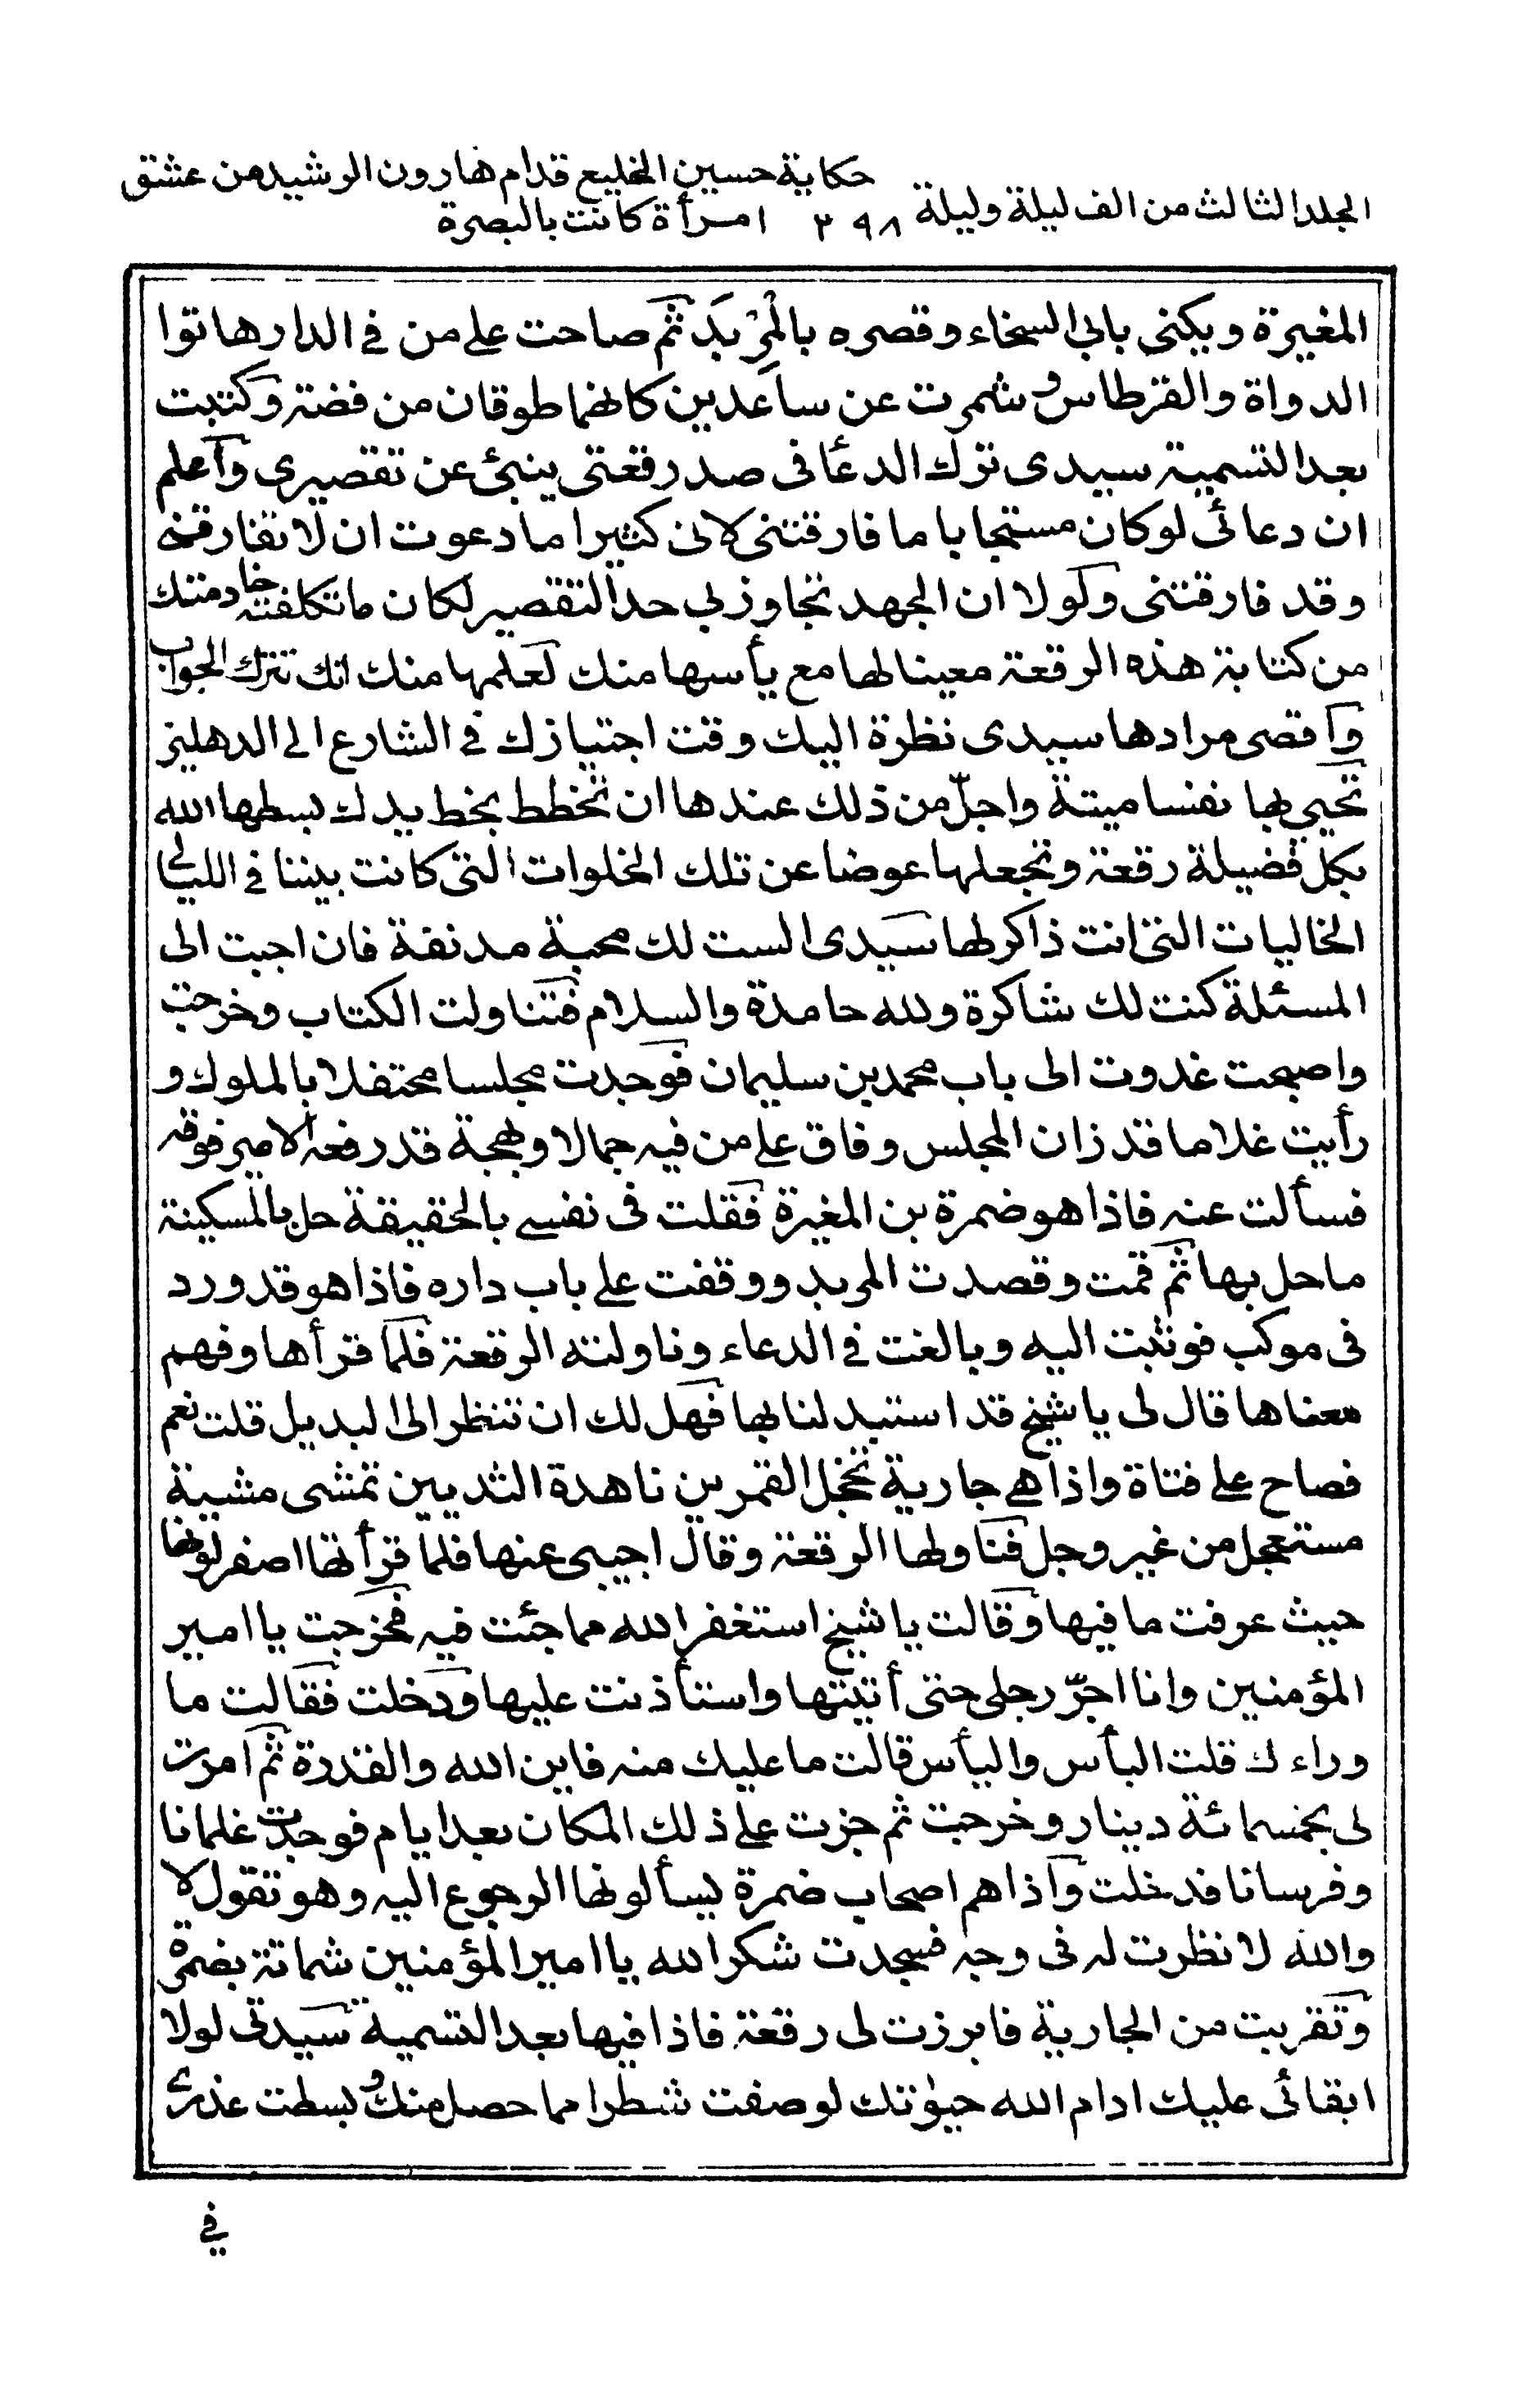 المجلد الثالث من الف ليلة وليلة ٣٩٨ حكاية حسين الخليع قدام هارون الرشيد من عشق
امرأة كانت بالبصرة
المغيرة ويكنى بابي السخاء وقصره بالمِرْبَد ثم صاحت على من في الدار هاتوا
الدواة والقرطاس وشمرت عن ساعدين كانهما طوقان من فضة وكتبت
بعد التسمية سيدى ترك الدعا فى صدر رقعتى ينبئ عن تقصيرى واعلم
ان دعائى لو كان مستجابا ما فارقتنى لانى كثيرا ما دعوت ان لا تفارقنى
وقد فارقتنى ولولا ان الجهد تجاوز بي حد التقصير لكان ما تكلفته خادمتك
من كتابة هذه الرقعة معينا لها مع يأسها منك لعلمها منك انك تترك الجواب
واقصى مرادها سيدى نظرة اليك وقت اجتيازك في الشارع الى الدهليز
تحيي بها نفسا ميتة واجلّ من ذلك عندها ان تخطط بخط يدك بسطها الله
بكل فضيلة رقعة وتجعلها عوضا عن تلك الخلوات التى كانت بيننا في الليالي
الخاليات التى انت ذاكر لها سيدى الست لك محبة مدنفة فان اجبت الى
المسئلة كنت لك شاكرة ولله حامدة والسلام فتناولت الكتاب وخرجت
واصبحت غدوت الى باب محمد بن سليمان فوجدت مجلسا محتفلا بالملوك و
رأيت غلاما قد زان المجلس وفاق على من فيه جمالا وبهجة قد رفعه الامير فوقه
فسألت عنه فاذا هو ضمرة بن المغيرة فقلت فى نفسى بالحقيقة حل بالمسكينة
ما حل بها ثم قمت وقصدت المربد ووقفت على باب داره فاذا هو قد ورد
فى موكب فوثبت اليه وبالغت في الدعاء وناولته الرقعة فلما قرأها وفهم
معناها قال لى يا شيخ قد استبدلنا بها فهل لك ان تنظر الى البديل قلت نعم
فصاح على فتاة واذا هي جارية تخجل القمرين ناهدة الثديين تمشى مشية
مستعجل من غير وجل فناولها الرقعة وقال اجيبى عنها فلما قرأتها اصفر لونها
حيث عرفت ما فيها وقالت يا شيخ استغفر الله مما جئت فيه فخرجت يا امير
المؤمنين وانا اجرّ رجلى حتى أتيتها واستأذنت عليها ودخلت فقالت ما
وراءك قلت البأس واليأس قالت ما عليك منه فاين الله والقدرة ثم امرت
لى بخمسمائة دينار وخرجت ثم جزت على ذلك المكان بعد ايام فوجدت غلمانا
وفرسانا فدخلت واذا هم اصحاب ضمرة يسألونها الرجوع اليه وهو تقول لا
والله لا نظرت له فى وجه فسجدت شكرا لله يا امير المؤمنين شماتة بضمرة
وتقربت من الجارية فابرزت لى رقعة فاذا فيها بعد التسمية سيدتى لولا
ابقائى عليك ادام الله حيوتك لوصفت شطرا مما حصل منك وبسطت عذرى
في